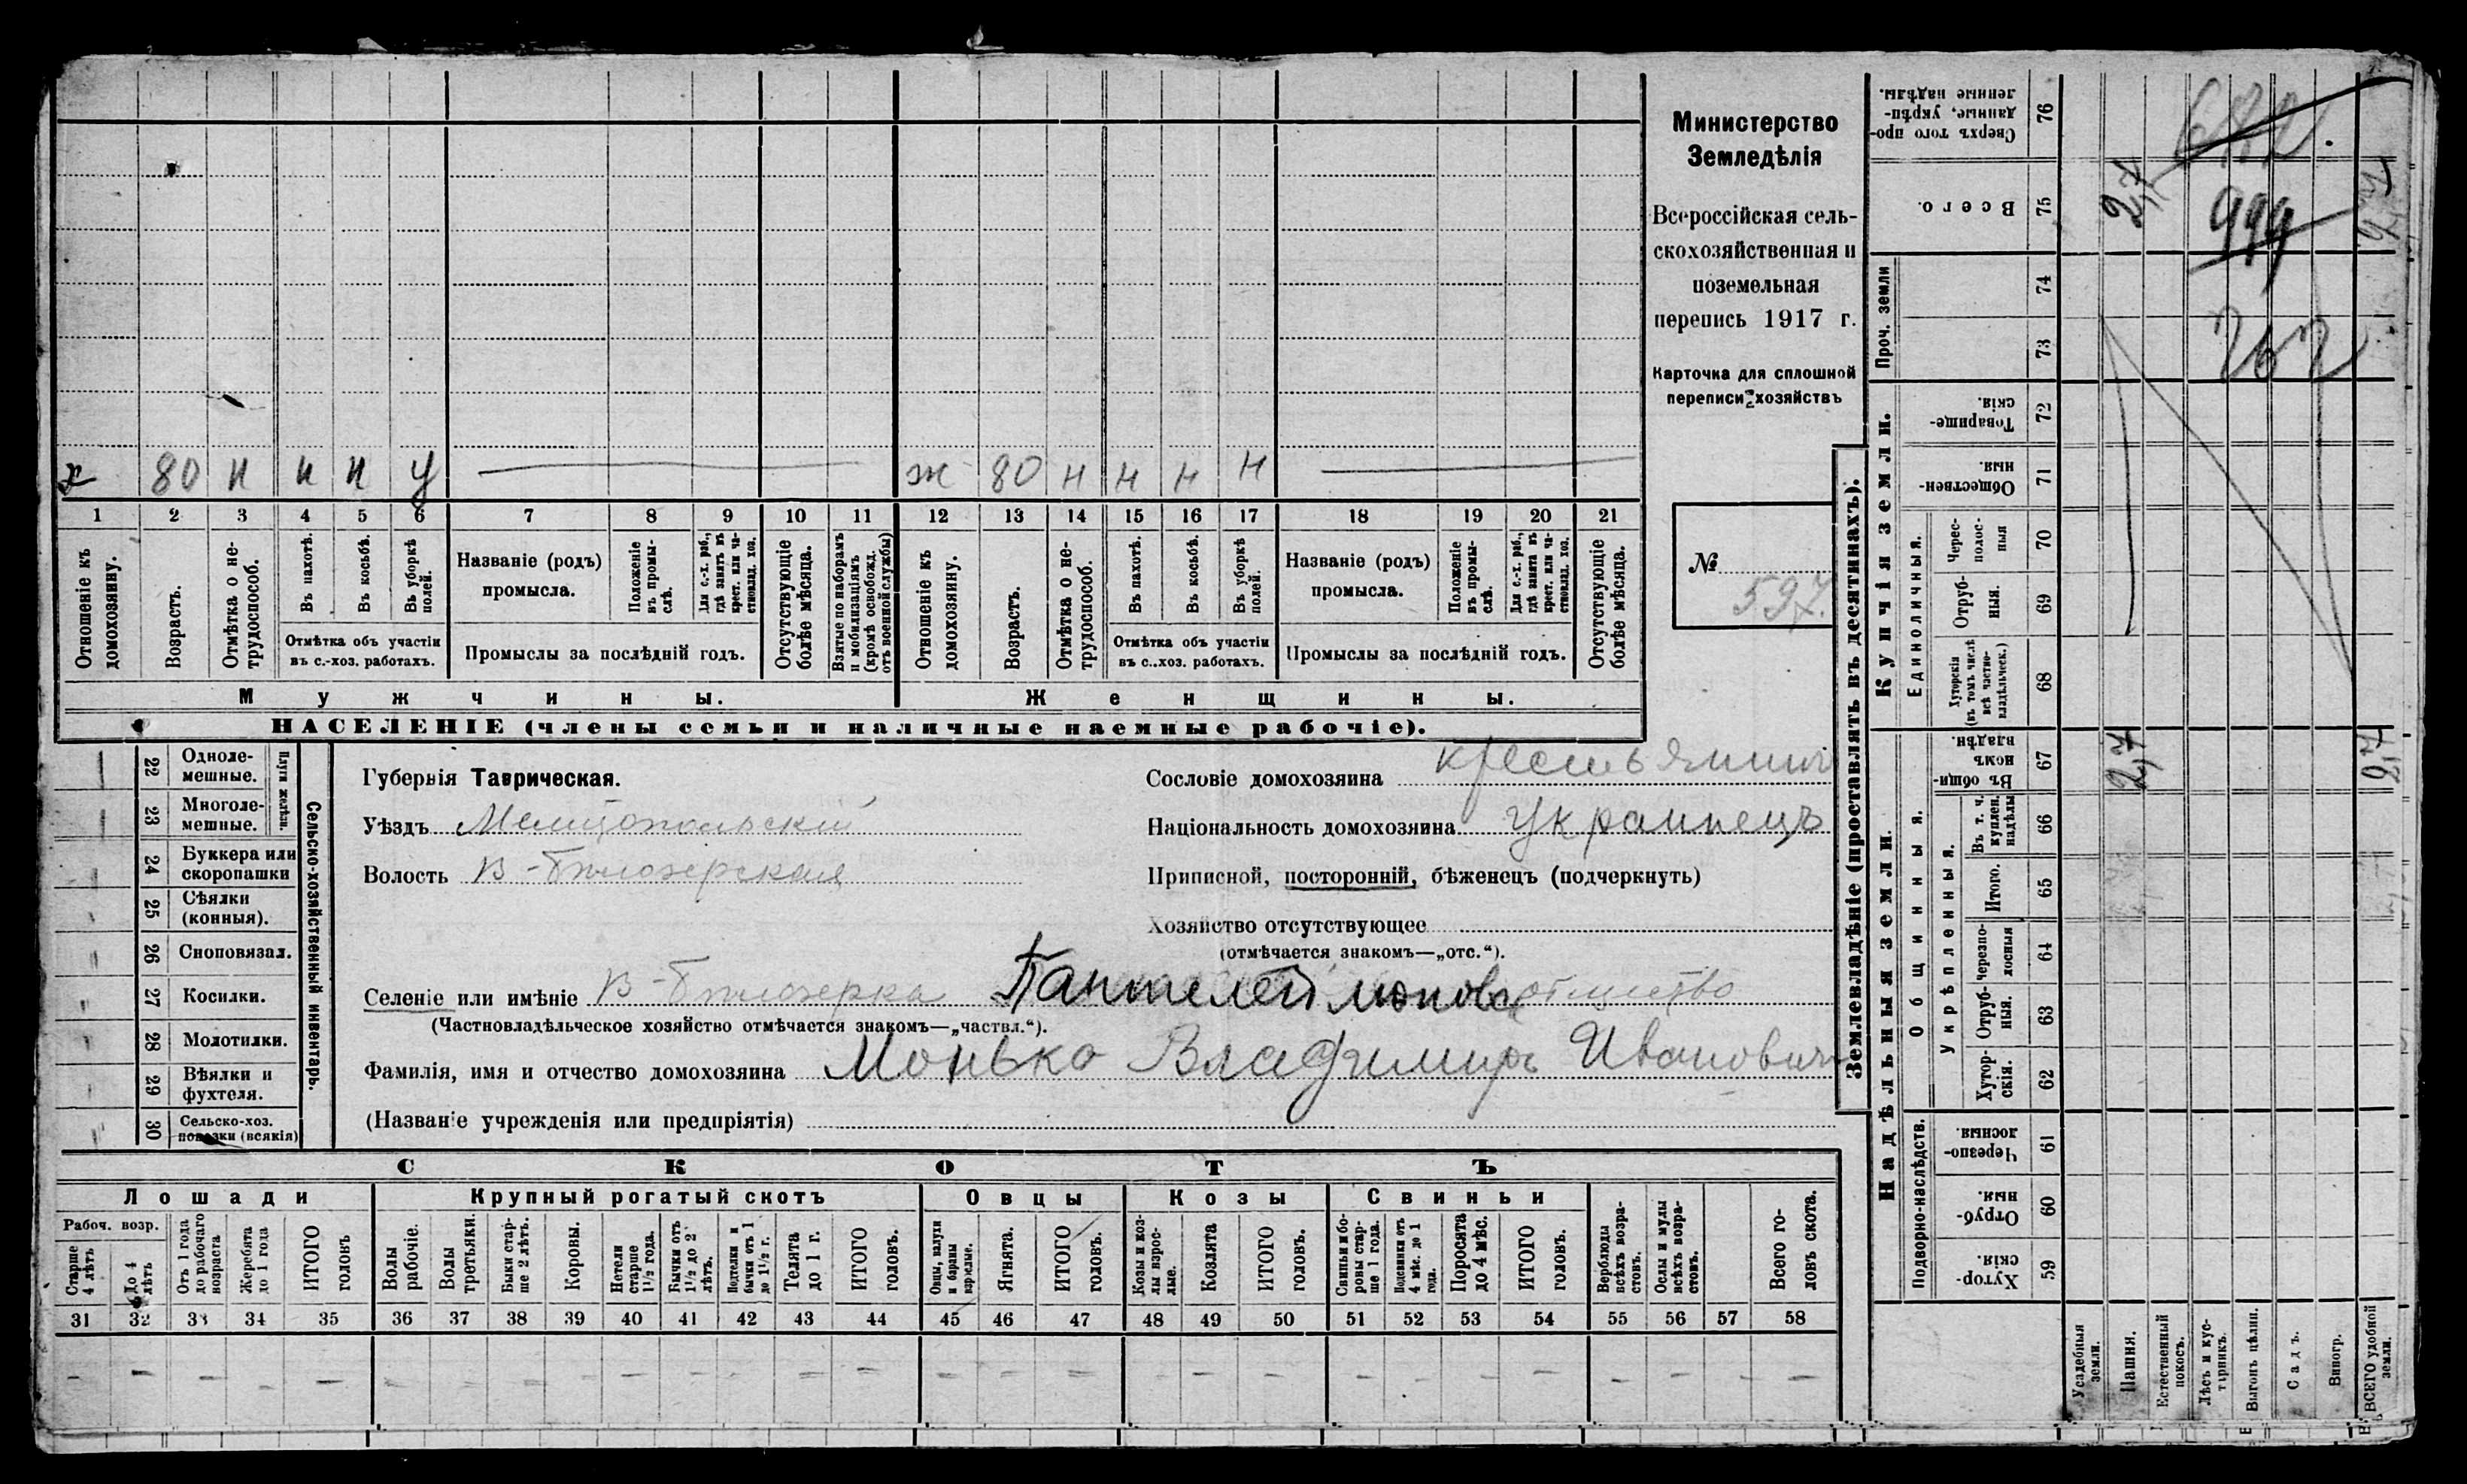 х 80 н н н у ж 80 н н н н
1 2 3 4 5 6 7 8 9 10 11 12 13 14 15 16 17 18 19 20 21
Отношеніе къ домохозяину.
Возрастъ.
Отмѣтка о не-трудоспособ.
Въ пахотѣ.
Въ косьбѣ.
Въ уборкѣ полей.
Отмѣтка объ участіи
въ с.-хоз. работахъ.
Названіе (родъ)
промысла.
Положеніе въ промы-слѣ.
Для с.-х. раб., гдѣ занятъ въ крест. или ча-стновлад. хоз.
Промыслы за послѣдній годъ.
Отсутствующіе болѣе мѣсяца.
Взятые по наборамъ и мобилизаціямъ (кромѣ освобожд. отъ военной службы)
Отношеніе къ домохозяину.
Возрастъ.
Отмѣтка о не-трудоспособ.
Въ пахотѣ.
Въ косьбѣ.
Въ уборкѣ полей.
Отмѣтка объ участіи
въ с..хоз. работахъ.
Названіе (родъ)
промысла.
Положеніе въ промы-слѣ.
Для с.-х. раб., гдѣ занята въ крест. или ча-стновлад. хоз.
Промыслы за послѣдній годъ.
Отсутствующіе болѣе мѣсяца.
Мужчины.
Женщины.
НАСЕЛЕНІЕ (члены семьи и наличные наемные рабочіе).
Министерство
Земледѣлія
Всероссійская сель-
скохозяйственная и
поземельная
перепись 1917 г.
Карточка для сплошной
переписи хозяйствъ
№
597.
22 Одноле-мешные.
23 Многоле-мешные.
Плуги желѣзн.
24 Буккера или скоропашки
25 Сѣялки (конныя).
26 Сноповязал.
27 Косилки.
28 Молотилки.
29 Вѣялки и фухтеля.
30 Сельско-хоз. повозки (всякія)
Сельско-хозяйственный инвентарь.
Губернія Таврическая.
Уѣздъ Мелитопольскій
Волость В-Бѣлозерская
Сословіе домохозяина крестьянинъ
Національность домохозяина украинецъ
Приписной, посторонній, бѣженецъ (подчеркнуть)
Хозяйство отсутствующее
(отмѣчается знакомъ—„отс.“).
Селеніе или имѣніе В-Бѣлозерка Пантелеймонов
(Частновладѣльческое хозяйство отмѣчается знакомъ—„частвл.“).
Фамилія, имя и отчество домохозяина Монько Владимиръ Ивановичъ
(Названіе учрежденія или предпріятія)
СКОТЪ
Лошади
Крупный рогатый скотъ
Овцы
Козы
Свиньи
Рабоч. возр.
Старше 4 лѣтъ
До 4 лѣтъ
Отъ 1 года до рабочаго возраста
Жеребята до 1 года
ИТОГО головъ
Волы рабочіе.
Волы третьяки.
Быки стар-ше 2 лѣтъ.
Коровы.
Нетели старше 1½ года.
Бычки отъ 1½ до 2 лѣтъ.
Подтелки и бычки отъ 1 до 1½ г.
Телята до 1 г.
ИТОГО головъ.
Овцы, валухи и бараны взрослые.
Ягнята.
ИТОГО головъ.
Козы и коз-лы взрос-лые.
Козлята
ИТОГО головъ.
Свиньи и бо-ровы стар-ше 1 года.
Подсвинки отъ 4 мѣс. до 1 года.
Поросята до 4 мѣс.
ИТОГО головъ.
Верблюды всѣхъ возра-стовъ.
Ослы и мулы всѣхъ возра-стовъ.
Всего го-ловъ скота.
31 32 33 34 35 36 37 38 39 40 41 42 43 44 45 46 47 48 49 50 51 52 53 54 55 56 57 58
Землевладѣніе (проставлять въ десятинахъ).
Сверхъ того про-данные, укрѣп-ленные надѣлы. 76
Всего. 75
Проч. земли
74
73
Купчія земли.
Товарище-скія. 72
Обществен-ныя. 71
Единоличныя.
Черес-полос-ныя 70
Отруб-ныя. 69
Хуторскія (въ томъ числѣ всѣ частно-владѣльческ.) 68
Надѣльныя земли.
Общинныя.
Въ общин-номъ владѣн. 67
Укрѣпленныя.
Въ т. ч. куплен. надѣлы 66
Итого. 65
Черезпо-лосныя 64
Отруб-ныя. 63
Хутор-скія. 62
Подворно-наслѣдств.
Черезпо-лосныя. 61
Отруб-ныя. 60
Хутор-скія. 59
Усадебныя земли.
Пашня.
Естественный покосъ.
Лѣсъ и кус-тарникъ.
Выгонъ цѣлин.
Садъ.
Виногр.
ВСЕГО удобной земли.
2,7
999
262
2,7
2,7